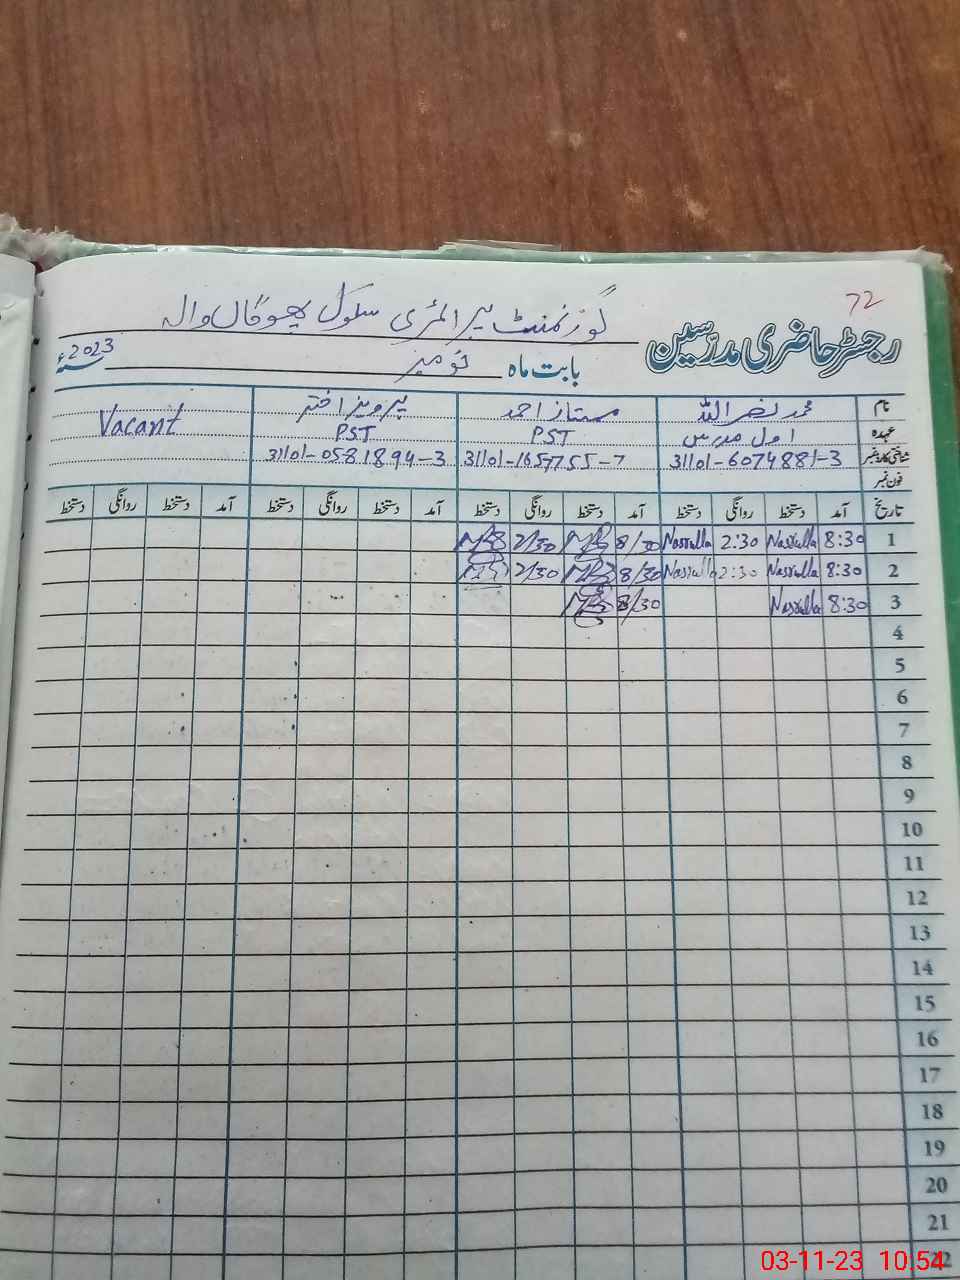 72
رجسٹر حاضری مدرسین
گورنمنٹ پرائمری سکول پھوگاں والہ
بابت ماہ نومبر سنہ 2023ء
نام محمد نصر اللہ ممتاز احمد پرویز اختر Vacant
عہدہ اول مدرس PST PST
شناختی کارڈ نمبر 31101-6074881-3 31101-1657755-7 31101-0581894-3
فون نمبر
تاریخ آمد دستخط روانگی دستخط آمد دستخط روانگی دستخط آمد دستخط روانگی دستخط آمد دستخط روانگی دستخط
1 8:30 Nasrulla 2:30 Nasrulla 8/30 2/30
2 8:30 Nasrulla 2:30 Nasrulla 8/30 2/30
3 8:30 Nasrulla 8/30
4
5
6
7
8
9
10
11
12
13
14
15
16
17
18
19
20
21
22
03-11-23 10:54